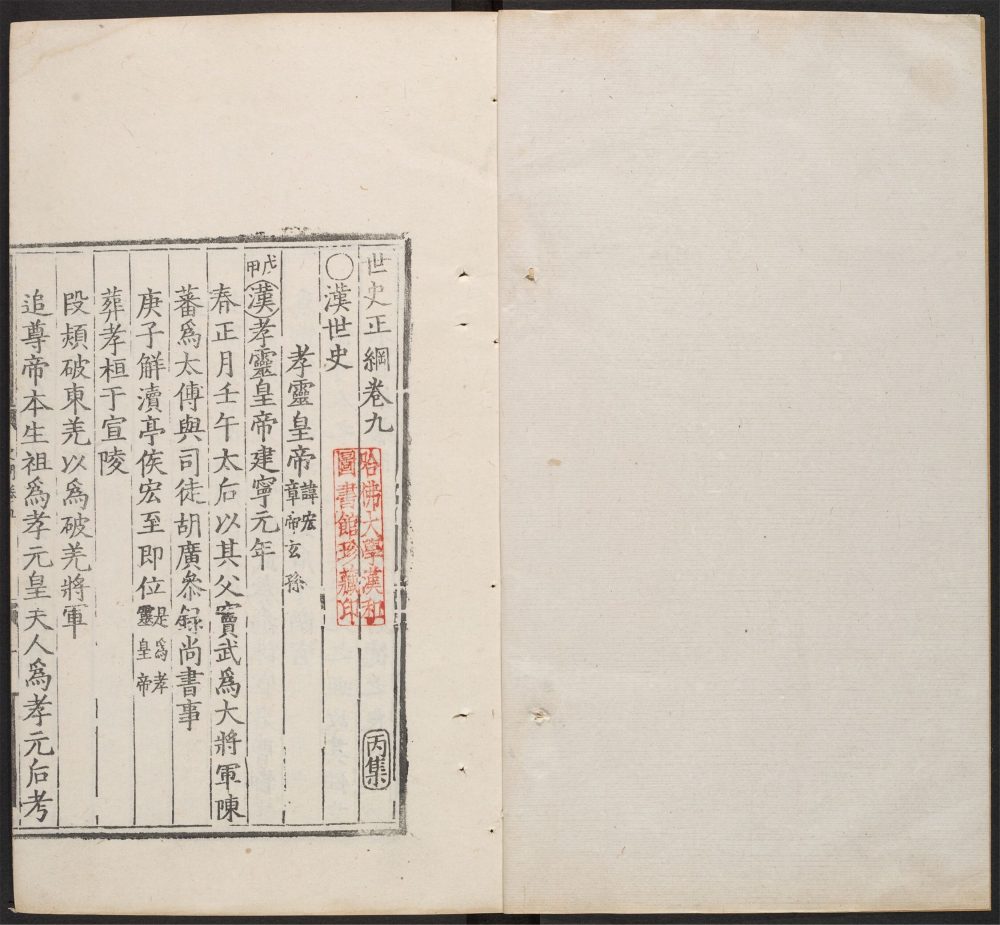 世史正綱卷九 丙集
○漢世史
孝靈皇帝諱宏章帝玄孫
戊申漢孝靈皇帝建寧元年
春正月壬午太后以其父竇武爲大將軍陳
蕃爲太傅與司徒胡廣叅錄尚書事
庚子解瀆亭侯宏至即位是爲孝靈皇帝
葬孝桓于宣陵
段熲破東羌以爲破羌將軍
追尊帝本生祖爲孝元皇夫人爲孝元后考
哈佛大學漢和
圖書館珍藏印